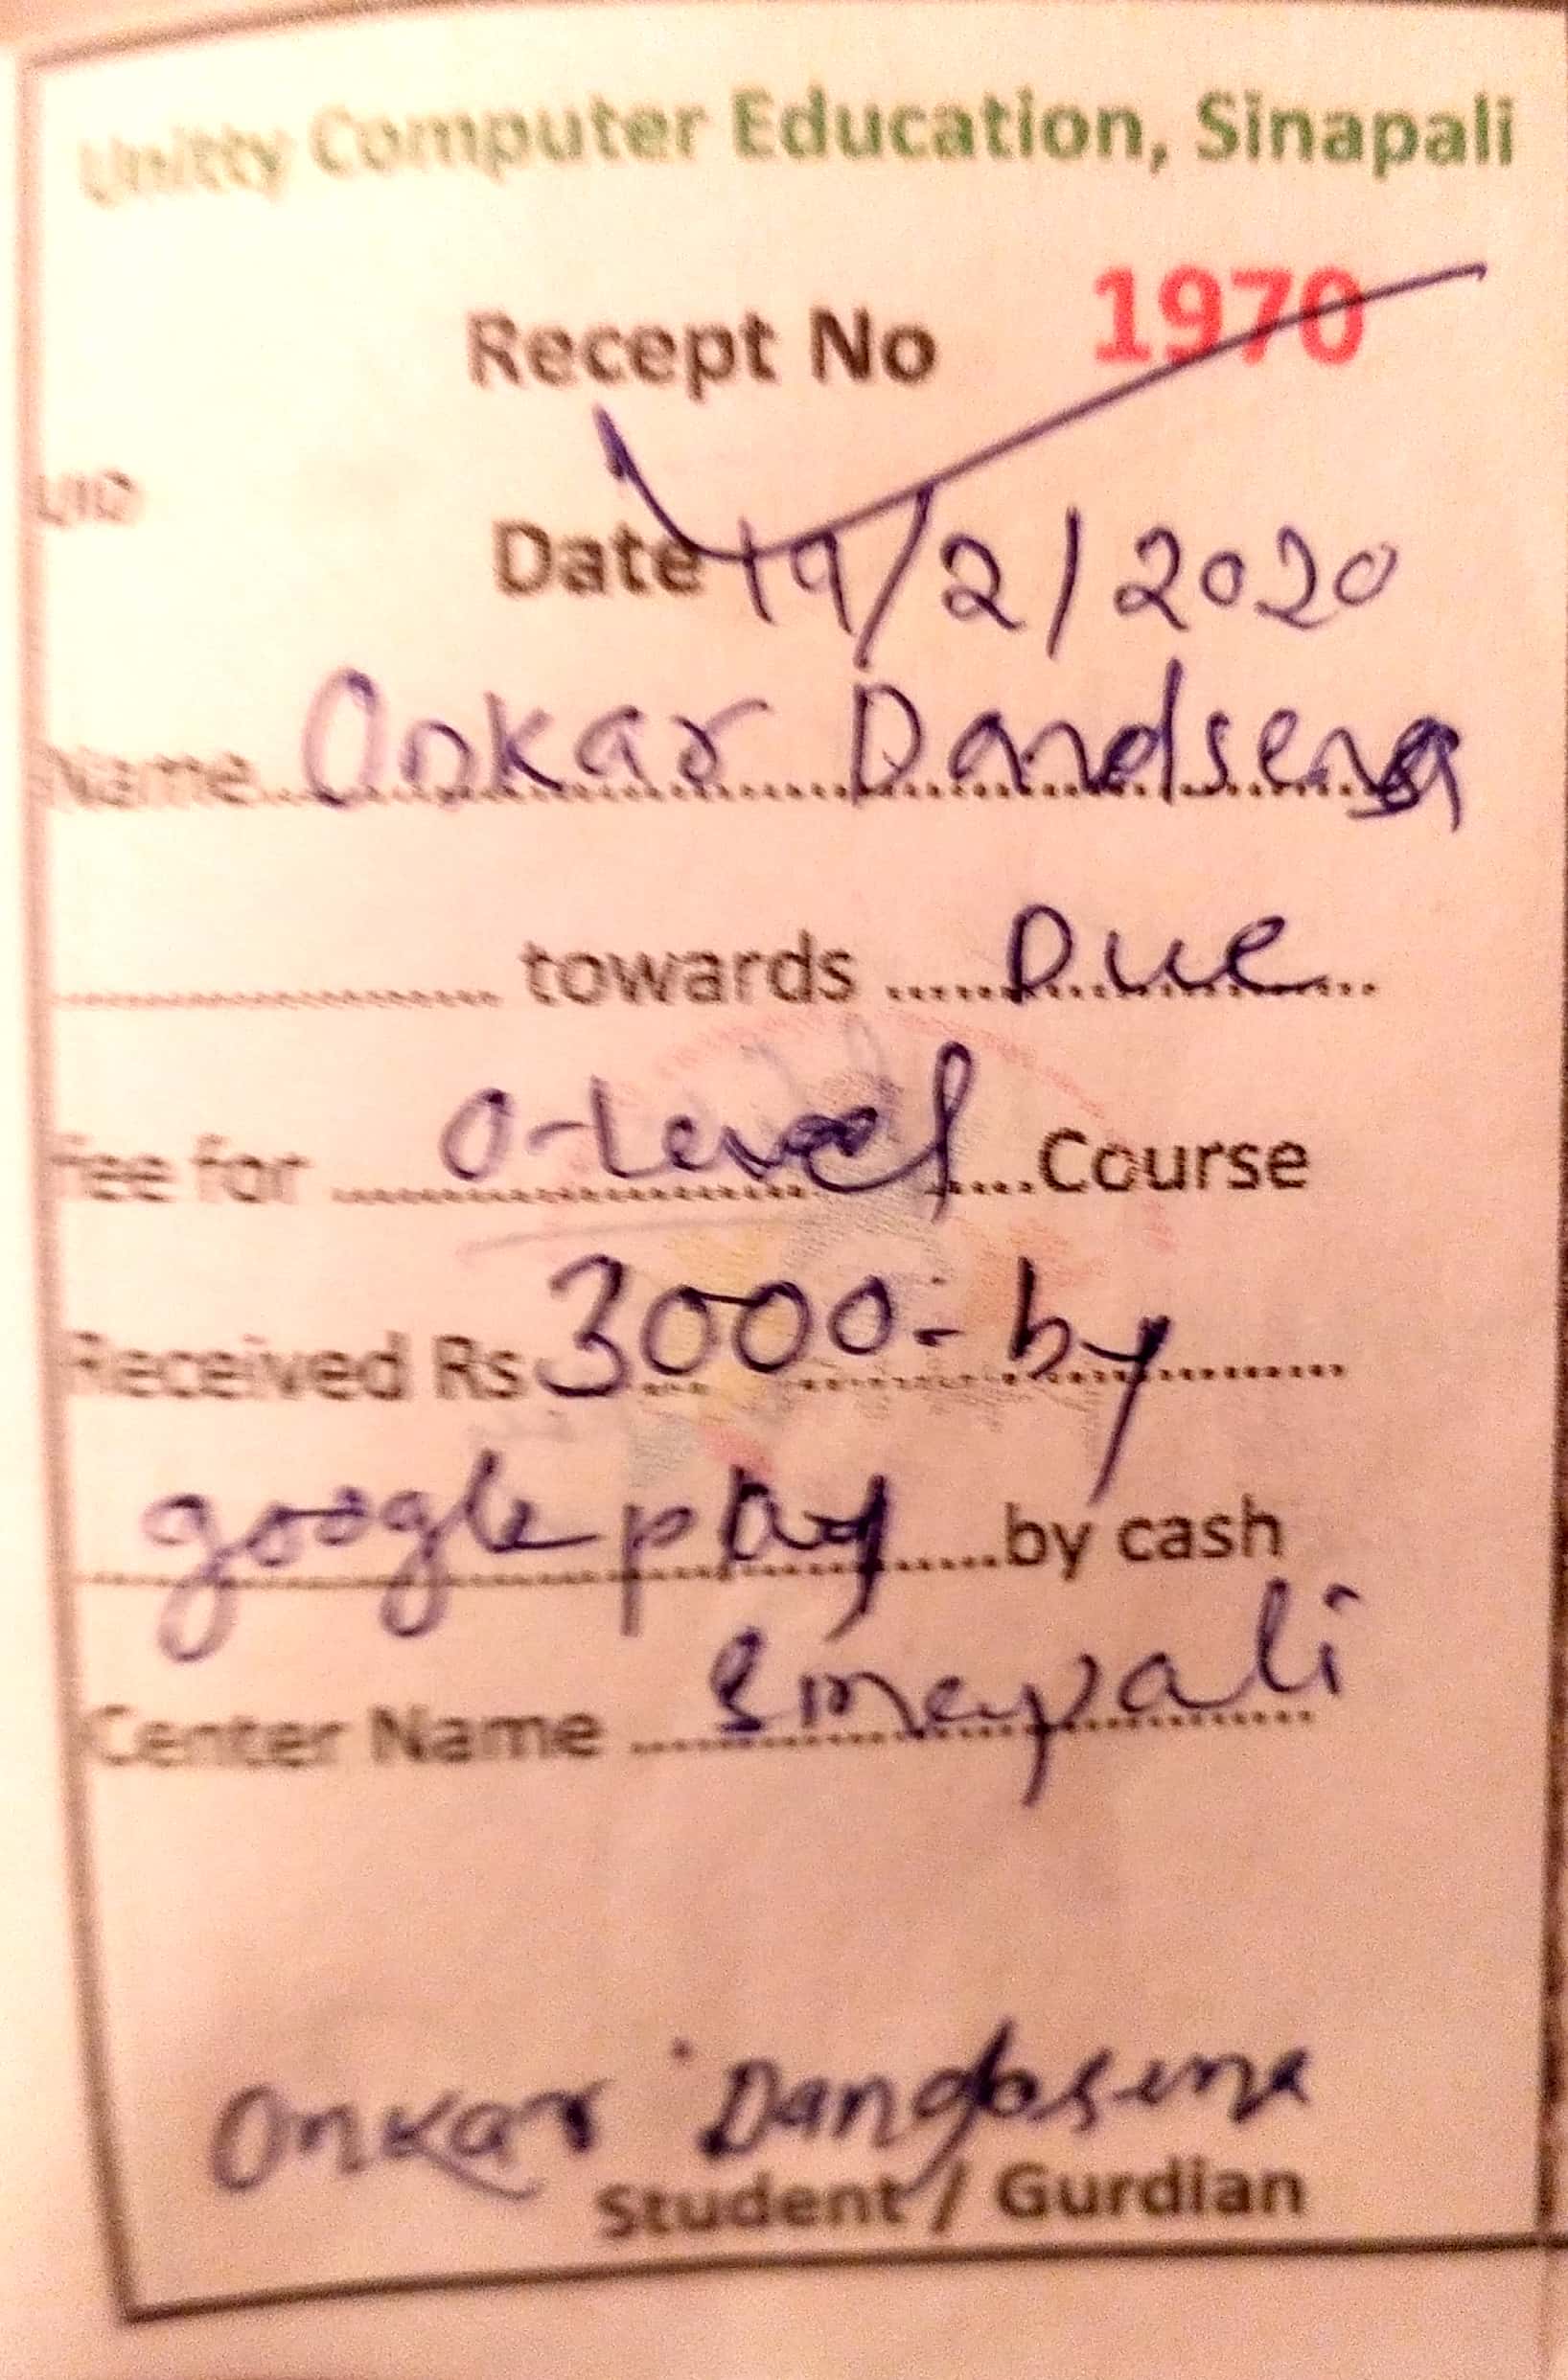 Unitty Computer Education, Sinapali
Recept No 1970
UID
Date 19/2/2020
Name Onkar Dandsena
towards Due
fee for O-Level Course
Received Rs 3000.- by
google play by cash
Center Name Sinapali
Onkar Dandasena
Student / Gurdian